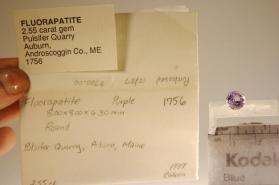 FLUORAPATITE
2.55 carat gem
Pulsifer Quarry
Auburn,
Androscoggin Co., ME
1756
Fluorapatite Purple 1756
8.00x8.00x6.30mm
Round
Pulsifer Quarry, Auburn, Maine
Kodak
Blue